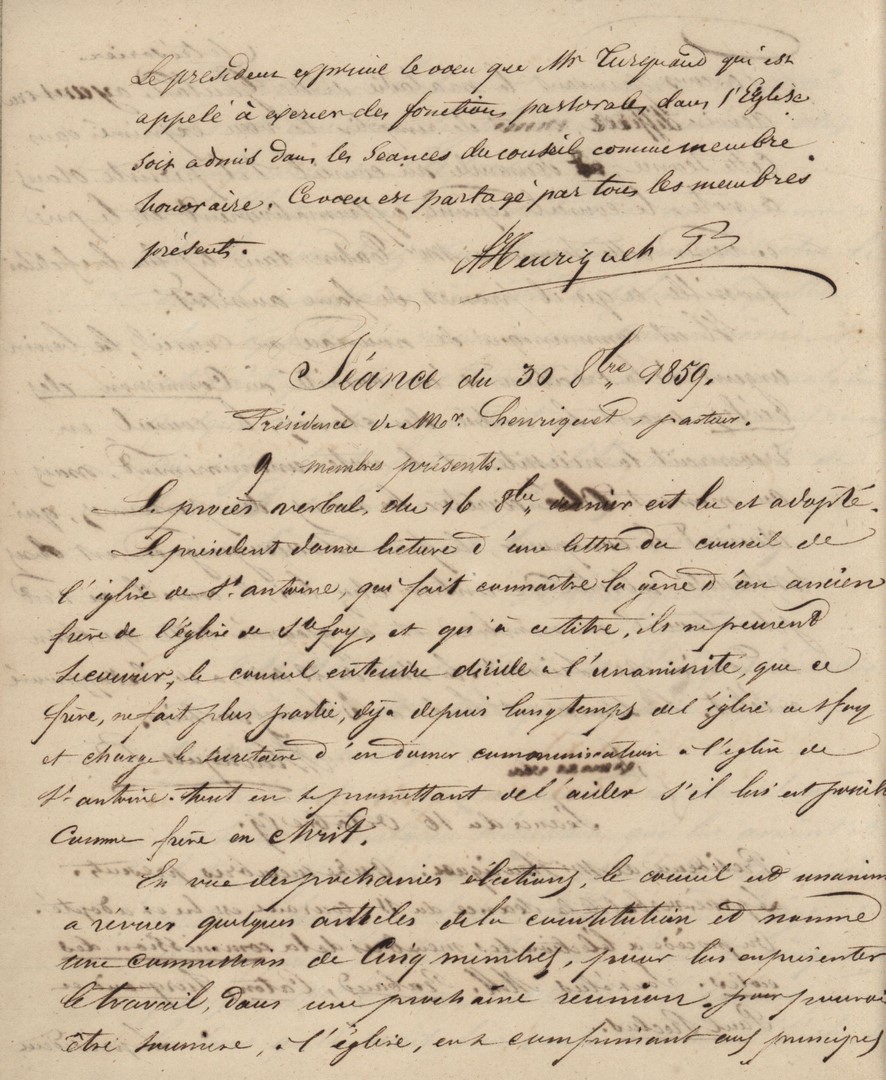 Le president exprime le voeu que Mr Turquand qui est
appelé à exercer des fonctions pastorales dans l'Eglise
soit admis dans les Seances du conseil comme membre
honoraire. Ce voeu est partagé par tous les membres
présents.
Henriquet
Séance du 30 8bre 1859.
Présidence de Mr. henriquet, pasteur.
9 membres présents.
Le procès verbal, du 16 8bre dernier est lu et adopté.
Le président donne lecture d'une lettre du conseil de
l'église de St. antoine, qui fait connaître la gêne d'un ancien
frère de l'église de Ste foy, et qui à ce titre, ils ne peuvent
secourir, le conseil entendu décide a l'unanimité, que ce
frère, ne fait plus partie, déja depuis longtemps de l'église de st foy
et charge le secretaire d'en donner communication a l'église de
St antoine. tout en se promettant de l'aider s'il lui est possib
comme frère en Christ.
En vue des prochaines élections, le conseil est unanim
a réviser quelques articles de la constitution et nomme
une commission de Cinq membres, pour lui en présenter
le travail, dans une prochaine reunion, pour pouvoi
être soumise, a l'église, en se conformant aux principes